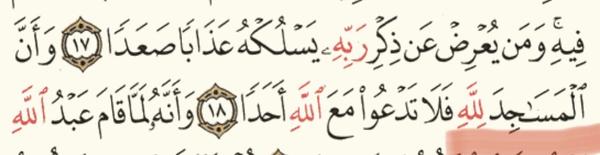 فِيهِۚ وَمَن يُعْرِضْ عَن ذِكْرِ رَبِّهِۦ يَسْلُكْهُ عَذَابًا صَعَدًا ١٧ وَأَنَّ
ٱلْمَسَـٰجِدَ لِلَّهِ فَلَا تَدْعُوا۟ مَعَ ٱللَّهِ أَحَدًا ١٨ وَأَنَّهُۥ لَمَّا قَامَ عَبْدُ ٱللَّهِ